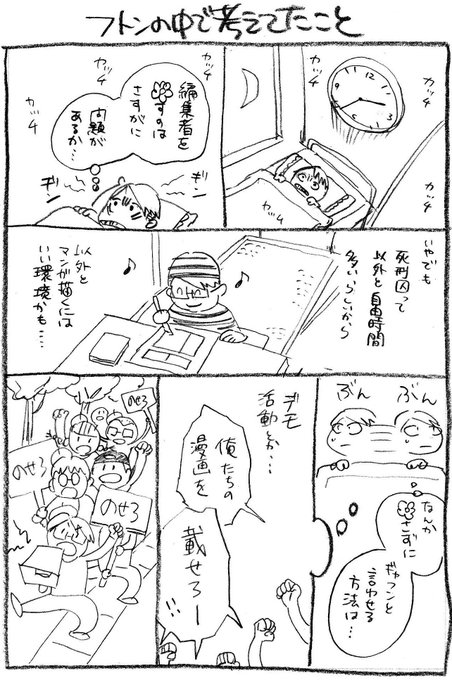 フトンの中で考えてたこと
カッチ
カッチ
カッチ
カッチ
カッチ
12
3
編集者を
すのは
さすがに
問題が
あるか…
カッチ
カッチ
ギン
ギン
いやでも
死刑囚って
以外と自由時間
多いらしいから
♪
♪
以外と
マンガ描くには
いい環境かも…
ぶん
ぶん
なんか
さずに
ギャフンと
言わせる
方法は…
デモ
活動とか…
俺たちの
漫画を
載せろー
のせろ
のせろ
のせろ